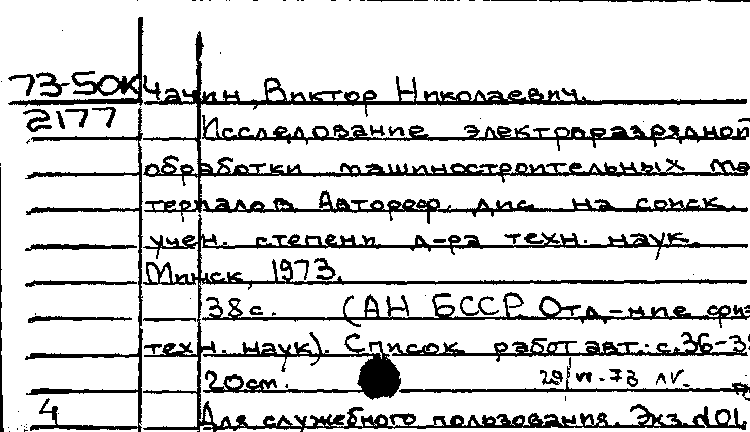 73-50К Чачин, Виктор Николаевич.
2177 Исследование электроразрядной
обработки машиностроительных ма
териалов Автореф. дис. на соиск.
учен. степени д-ра техн. наук.
Минск, 1973.
38 с. (АН БССР. Отд-ние физ
техн. наук). Список работ авт.: с.36-3
20см. 29/VI-73 ЛV.
4 Для служебного пользования. Экз. №01